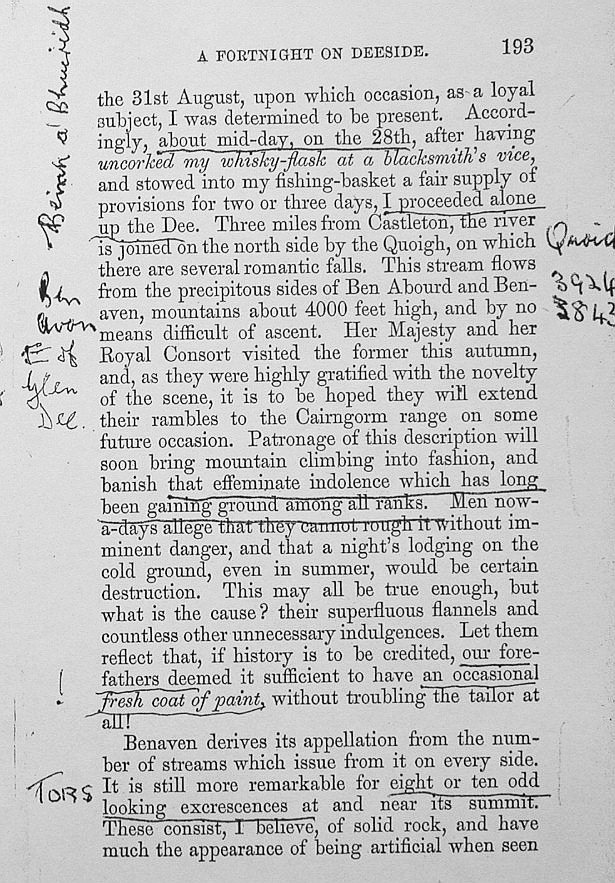 A FORTNIGHT ON DEESIDE. 193
the 31st August, upon which occasion, as a loyal
subject, I was determined to be present. Accord-
ingly, about mid-day, on the 28th, after having
uncorked my whisky-flask at a blacksmith's vice,
and stowed into my fishing-basket a fair supply of
provisions for two or three days, I proceeded alone
up the Dee. Three miles from Castleton, the river
is joined on the north side by the Quoigh, on which
there are several romantic falls. This stream flows
from the precipitous sides of Ben Abourd and Ben-
aven, mountains about 4000 feet high, and by no
means difficult of ascent. Her Majesty and her
Royal Consort visited the former this autumn,
and, as they were highly gratified with the novelty
of the scene, it is to be hoped they will extend
their rambles to the Cairngorm range on some
future occasion. Patronage of this description will
soon bring mountain climbing into fashion, and
banish that effeminate indolence which has long
been gaining ground among all ranks. Men now-
a-days allege that they cannot rough it without im-
minent danger, and that a night's lodging on the
cold ground, even in summer, would be certain
destruction. This may all be true enough, but
what is the cause? their superfluous flannels and
countless other unnecessary indulgences. Let them
reflect that, if history is to be credited, our fore-
fathers deemed it sufficient to have an occasional
fresh coat of paint, without troubling the tailor at
all!
Benaven derives its appellation from the num-
ber of streams which issue from it on every side.
It is still more remarkable for eight or ten odd
looking excrescences at and near its summit.
These consist, I believe, of solid rock, and have
much the appearance of being artificial when seen
a' Bhuiridh
Ben
Avon
E of
Glen
Dee.
!
TORS
Quoich
3924
3843